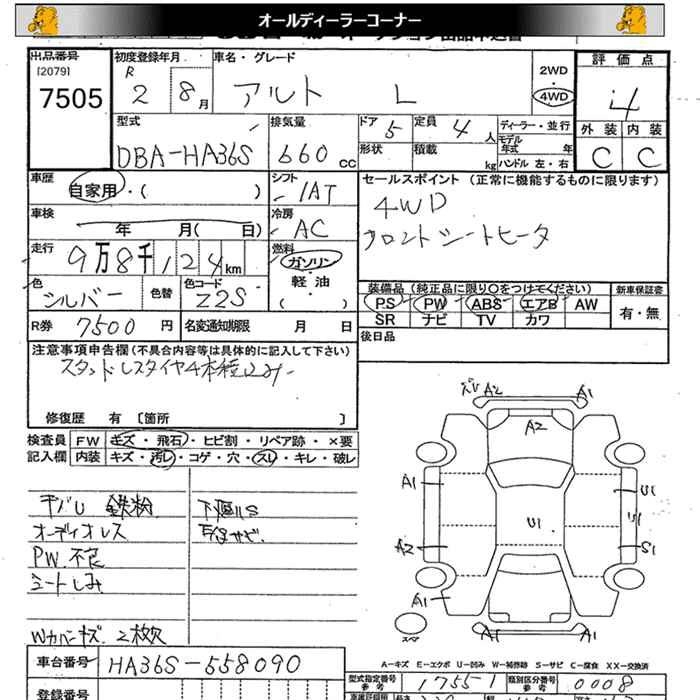 オールディーラーコーナー
出品番号
[2079]
7505
初度登録年月
R 2 8 月
車名・グレード
アルト L
2WD
4WD
評価点
4
型式
DBA-HA36S
排気量
660 cc
ドア 5
定員 4 人
形状
積載 kg
ディーラー・並行
モデル年式 年
ハンドル 左・右
外装 内装
C C
車歴
自家用・( )
シフト
IAT
セールスポイント (正常に機能するものに限ります)
4WD
フロントシートヒータ
車検
年 月( 日)
冷房
AC
走行
9万8千124km
燃料
ガソリン・
軽油・
( )
色
シルバー
色替
色コード
Z2S
装備品 (純正品に限り○をつけてください)
PS PW ABS エアB AW
SR ナビ TV カワ
新車保証書
有・無
R券 7500 円
名変通知期限 月 日
後日品
注意事項申告欄(不具合内容等は具体的に記入して下さい)
スタッドレスタイヤ4本積込み
修復歴 有 [箇所 ]
検査員
記入欄
FW キズ・飛石・ヒビ割・リペア跡・×要
内装 キズ・汚レ・コゲ・穴・スレ・キレ・破レ
鉄粉
オーディオレス
PW不良
シートしみ
Wカバーキズ 2枚欠
下廻りS
ズレ A2 A1
A2
A1 U1
U1
A2 S1
A1
スペア
A1 A1
A-キズ E-エクボ U-凹み W-補修跡 S-サビ C-腐食 XX-交換済
車台番号
HA36S-558090
型式指定番号
参考
17551
類別区分番号
参考
0008
登録番号